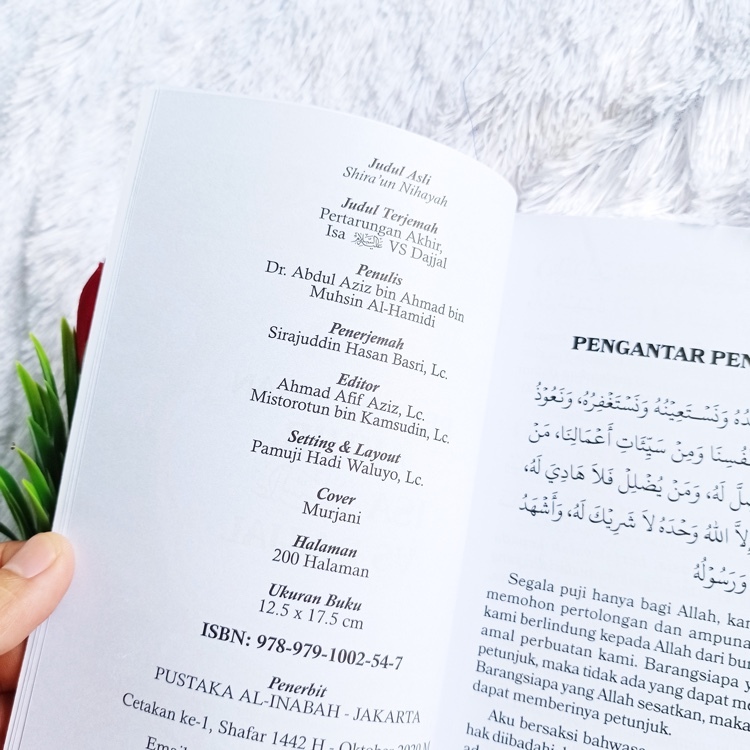 Judul Asli
Shira'un Nihayah
Judul Terjemah
Pertarungan Akhir,
Isa VS Dajjal
Penulis
Dr. Abdul Aziz bin Ahmad bin
Muhsin Al-Hamidi
Penerjemah
Sirajuddin Hasan Basri, Lc.
Editor
Ahmad Afif Aziz, Lc.
Mistorotun bin Kamsudin, Lc.
Setting & Layout
Pamuji Hadi Waluyo, Lc.
Cover
Murjani
Halaman
200 Halaman
Ukuran Buku
12.5 x 17.5 cm
ISBN: 978-979-1002-54-7
Penerbit
PUSTAKA AL-INABAH - JAKARTA
Cetakan ke-1, Shafar 1442 H - Oktober 2020 M
Email
PENGANTAR PEN
وَنَسْتَعِيْنُهُ وَنَسْتَغْفِرُهُ، وَنَعُوْذُ
وَمِنْ سَيِّئَاتِ أَعْمَالِنَا، مَنْ
لَهُ، وَمَنْ يُضْلِلْ فَلاَ هَادِيَ لَهُ،
إِلاَّ اللهُ وَحْدَهُ لاَ شَرِيْكَ لَهُ، وَأَشْهَدُ
وَرَسُوْلُهُ
Segala puji hanya bagi Allah,
memohon pertolongan dan ampuna
kami berlindung kepada Allah dari bu
amal perbuatan kami. Barangsiapa y
petunjuk, maka tidak ada yang dapat me
Barangsiapa yang Allah sesatkan, maka
dapat memberinya petunjuk.
Aku bersaksi bahwasa
hak diibadahi